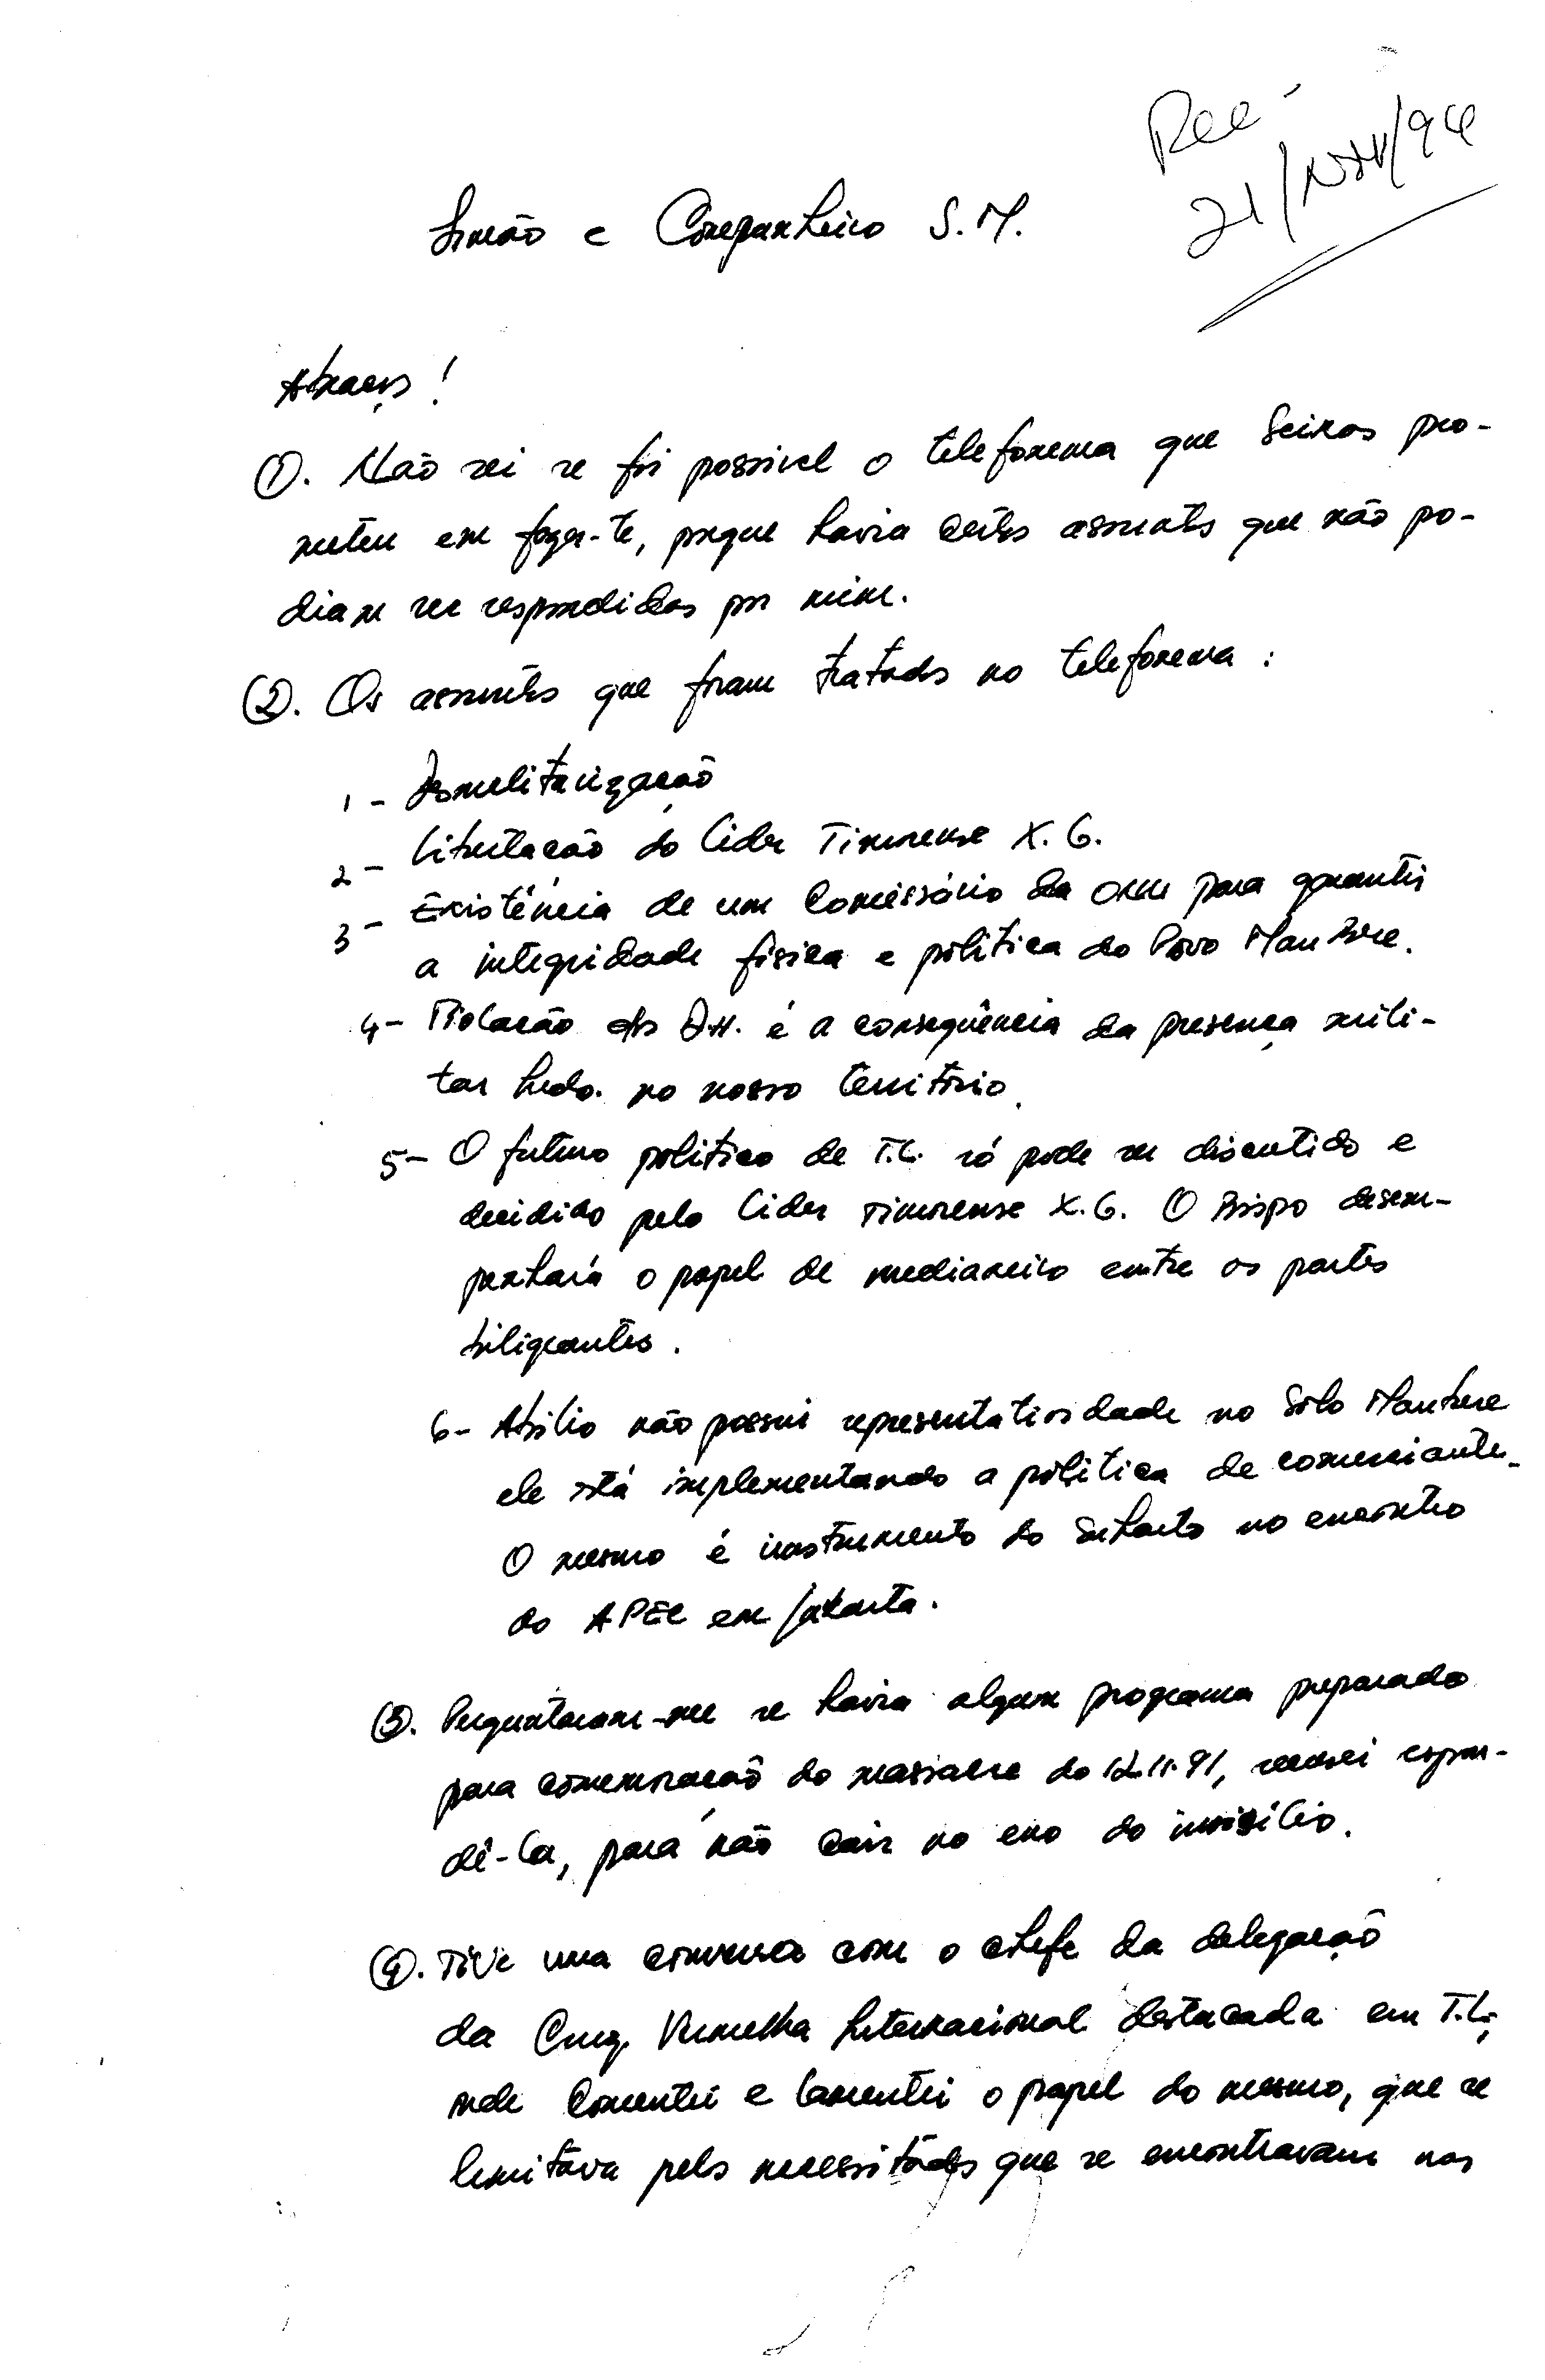 Rec
21/Nov/94
Irmão e Companheiro S.M.
Abraços!
①. Não sei se foi possivel o telefonema que Seixas pro-
meteu em fazer-te, porque havia certos assuntos que não po-
diam ser respondidos por mim.
②. Os assuntos que foram tratados no telefonema :
1 - Desmilitarização
2 - Libertação do Lider Timorense X. G.
3 - Existência de um Comissário da ONU para garantir
a integridade física e política do Povo Maubere.
4 - Violação dos DH. é a consequência da presença mili-
tar Indo. no nosso território.
5 - O futuro politico de T.L. só pode ser discutido e
decidido pelo Lider Timorense X.G. O Bispo desem-
penhará o papel de medianeiro entre as partes
biligrantes.
6 - Abílio não possui representatividade no Solo Maubere
ele está implementando a política de comerciante.
O mesmo é instrumento do Suharto no encontro
do APEC em Jakarta.
③. Perguntaram-me se havia algum programa preparado
para comemoração do massacre do 12.11.91, recusei respon-
dê-la, para não cair no erro do
④. Tive uma conversa com o chefe da delegação
da Cruz Vermelha Internacional destacada em T.L.,
onde comentei e lamentei o papel do mesmo, que se
limitava pelos necessitados que se encontravam nas